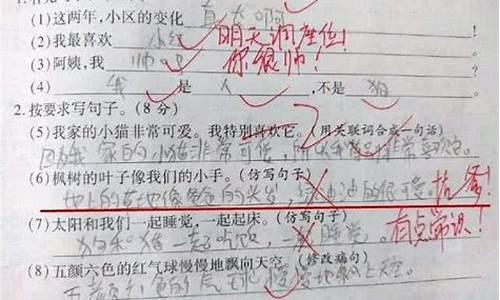 (1)这两年,小区的变化 真大啊
(2)我最喜欢 小红 明天调座位!
(3)阿姨,我 帅吧 你很帅!
(4) 我 是 人 ,不是 狗
2. 按要求写句子。(8 分)
(5)我家的小猫非常可爱。我特别喜欢它。(用关联词合成一句话)
因为我家的小猫非常可爱,所以我特别非常喜欢它。
(6)枫树的叶子像我们的小手。(仿写句子)
地上的草地像爸爸的头发,绿油油的很可爱。 找爹!
(7)太阳和我们一起睡觉,一起起床。(仿写句子)
狗和猪一起吃饭,一起睡觉。 有点常识!
(8)五颜六色的红气球慢慢地飘向天空。(修改病句)
五颜六色的气球慢慢地飘上天空。